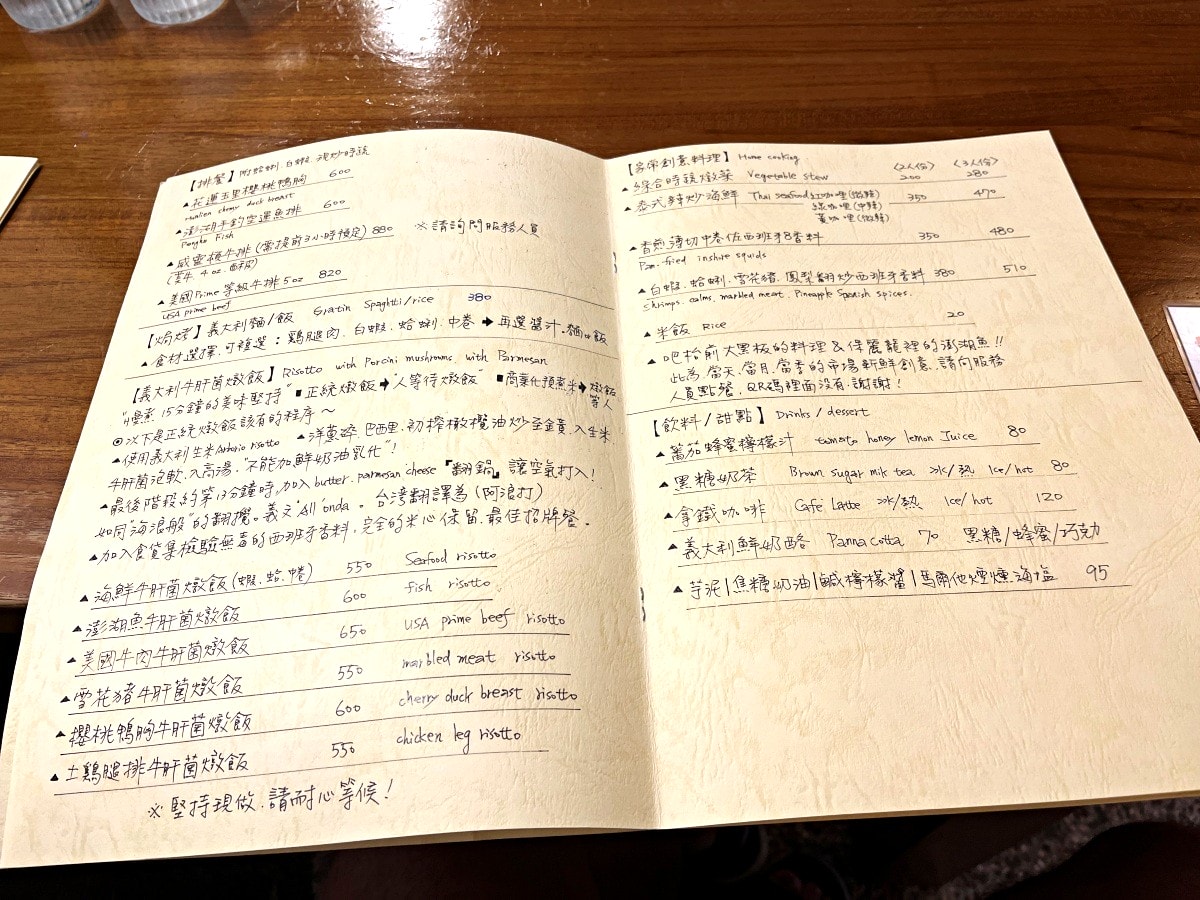 【排餐】附蛤蜊.白蝦.現炒時蔬
▲花蓮玉里櫻桃鴨胸 600
Hualien cherry duck breast
▲澎湖手釣空運魚排 600
Penghu Fish
▲威靈頓牛排(需提前3小時預定) 880 ※請詢問服務人員
▲美國Prime等級牛排5oz 820
USA prime beef
【焗烤】義大利麵/飯 Gratin Spaghtti/rice 380
▲食材選擇.可複選:鷄腿肉.白蝦.蛤蜊.中卷➡再選醬汁.麵or飯
【義大利牛肝菌燉飯】Risotto with Porcini mushrooms. with Parmesan
"慢煮15分鐘的美味堅持" ■正統燉飯➡"人等待燉飯" ■商業化預煮米➡燉飯等人
⊙以下是正統燉飯該有的程序~
▲使用義大利生米Arborio risotto ▲洋蔥碎.巴西里.初榨橄欖油炒至金黃.入生米.
牛肝菌泡軟.入高湯."不能加鮮奶油乳化"!
▲最後階段約第13分鐘時,加入butter.parmesan cheese『翻鍋』讓空氣打入!
如同"海浪般"的翻攪。義文"All'onda。台灣翻譯為(阿浪打)
▲加入食貨集檢驗無毒的西班牙香料.完全的米心保留.最佳招牌餐。
▲海鮮牛肝菌燉飯(蝦.蛤.卷) 550 Seafood risotto
▲澎湖魚牛肝菌燉飯 600 fish risotto
▲美國牛肉牛肝菌燉飯 650 USA prime beef risotto
▲雪花豬牛肝菌燉飯 550 marbled meat risotto
▲櫻桃鴨胸牛肝菌燉飯 600 cherry duck breast risotto
▲土鷄腿排牛肝菌燉飯 550 chicken leg risotto
※堅持現做.請耐心等候!
【家常創意料理】Home cooking 〈2人份〉 〈3人份〉
▲綜合時蔬燉菜 Vegetable stew 200 280
▲泰式辣炒海鮮 Thai seafood 紅咖哩(微辣) 350 470
綠咖哩(中辣)
黃咖哩(微辣)
▲香煎薄切中卷佐西班牙8香料 350 480
Pan-fried inshore squids
▲白蝦.蛤蜊.雪花豬.鳳梨翻炒西班牙香料 380 510
Shrimps. calms. marbled meat. Pineapple Spanish spices.
▲米飯 Rice 20
▲吧枱前大黑板的料理&保麗龍裡的澎湖魚!!
此為當天.當月.當季的市場新鮮創意.請向服務
人員點餐.QR碼裡面沒有.謝謝!
【飲料/甜點】Drinks/dessert
▲蕃茄蜂蜜檸檬汁 tomato honey lemon Juice 80
▲黑糖奶茶 Brown sugar milk tea 冰/熱 Ice/hot 80
▲拿鐵咖啡 Café Latte 冰/熱 Ice/hot 120
▲義大利鮮奶酪 Panna cotta 70 黑糖/蜂蜜/巧克力
▲芋泥|焦糖奶油|鹹檸檬醬|馬爾他煙燻海塩 95